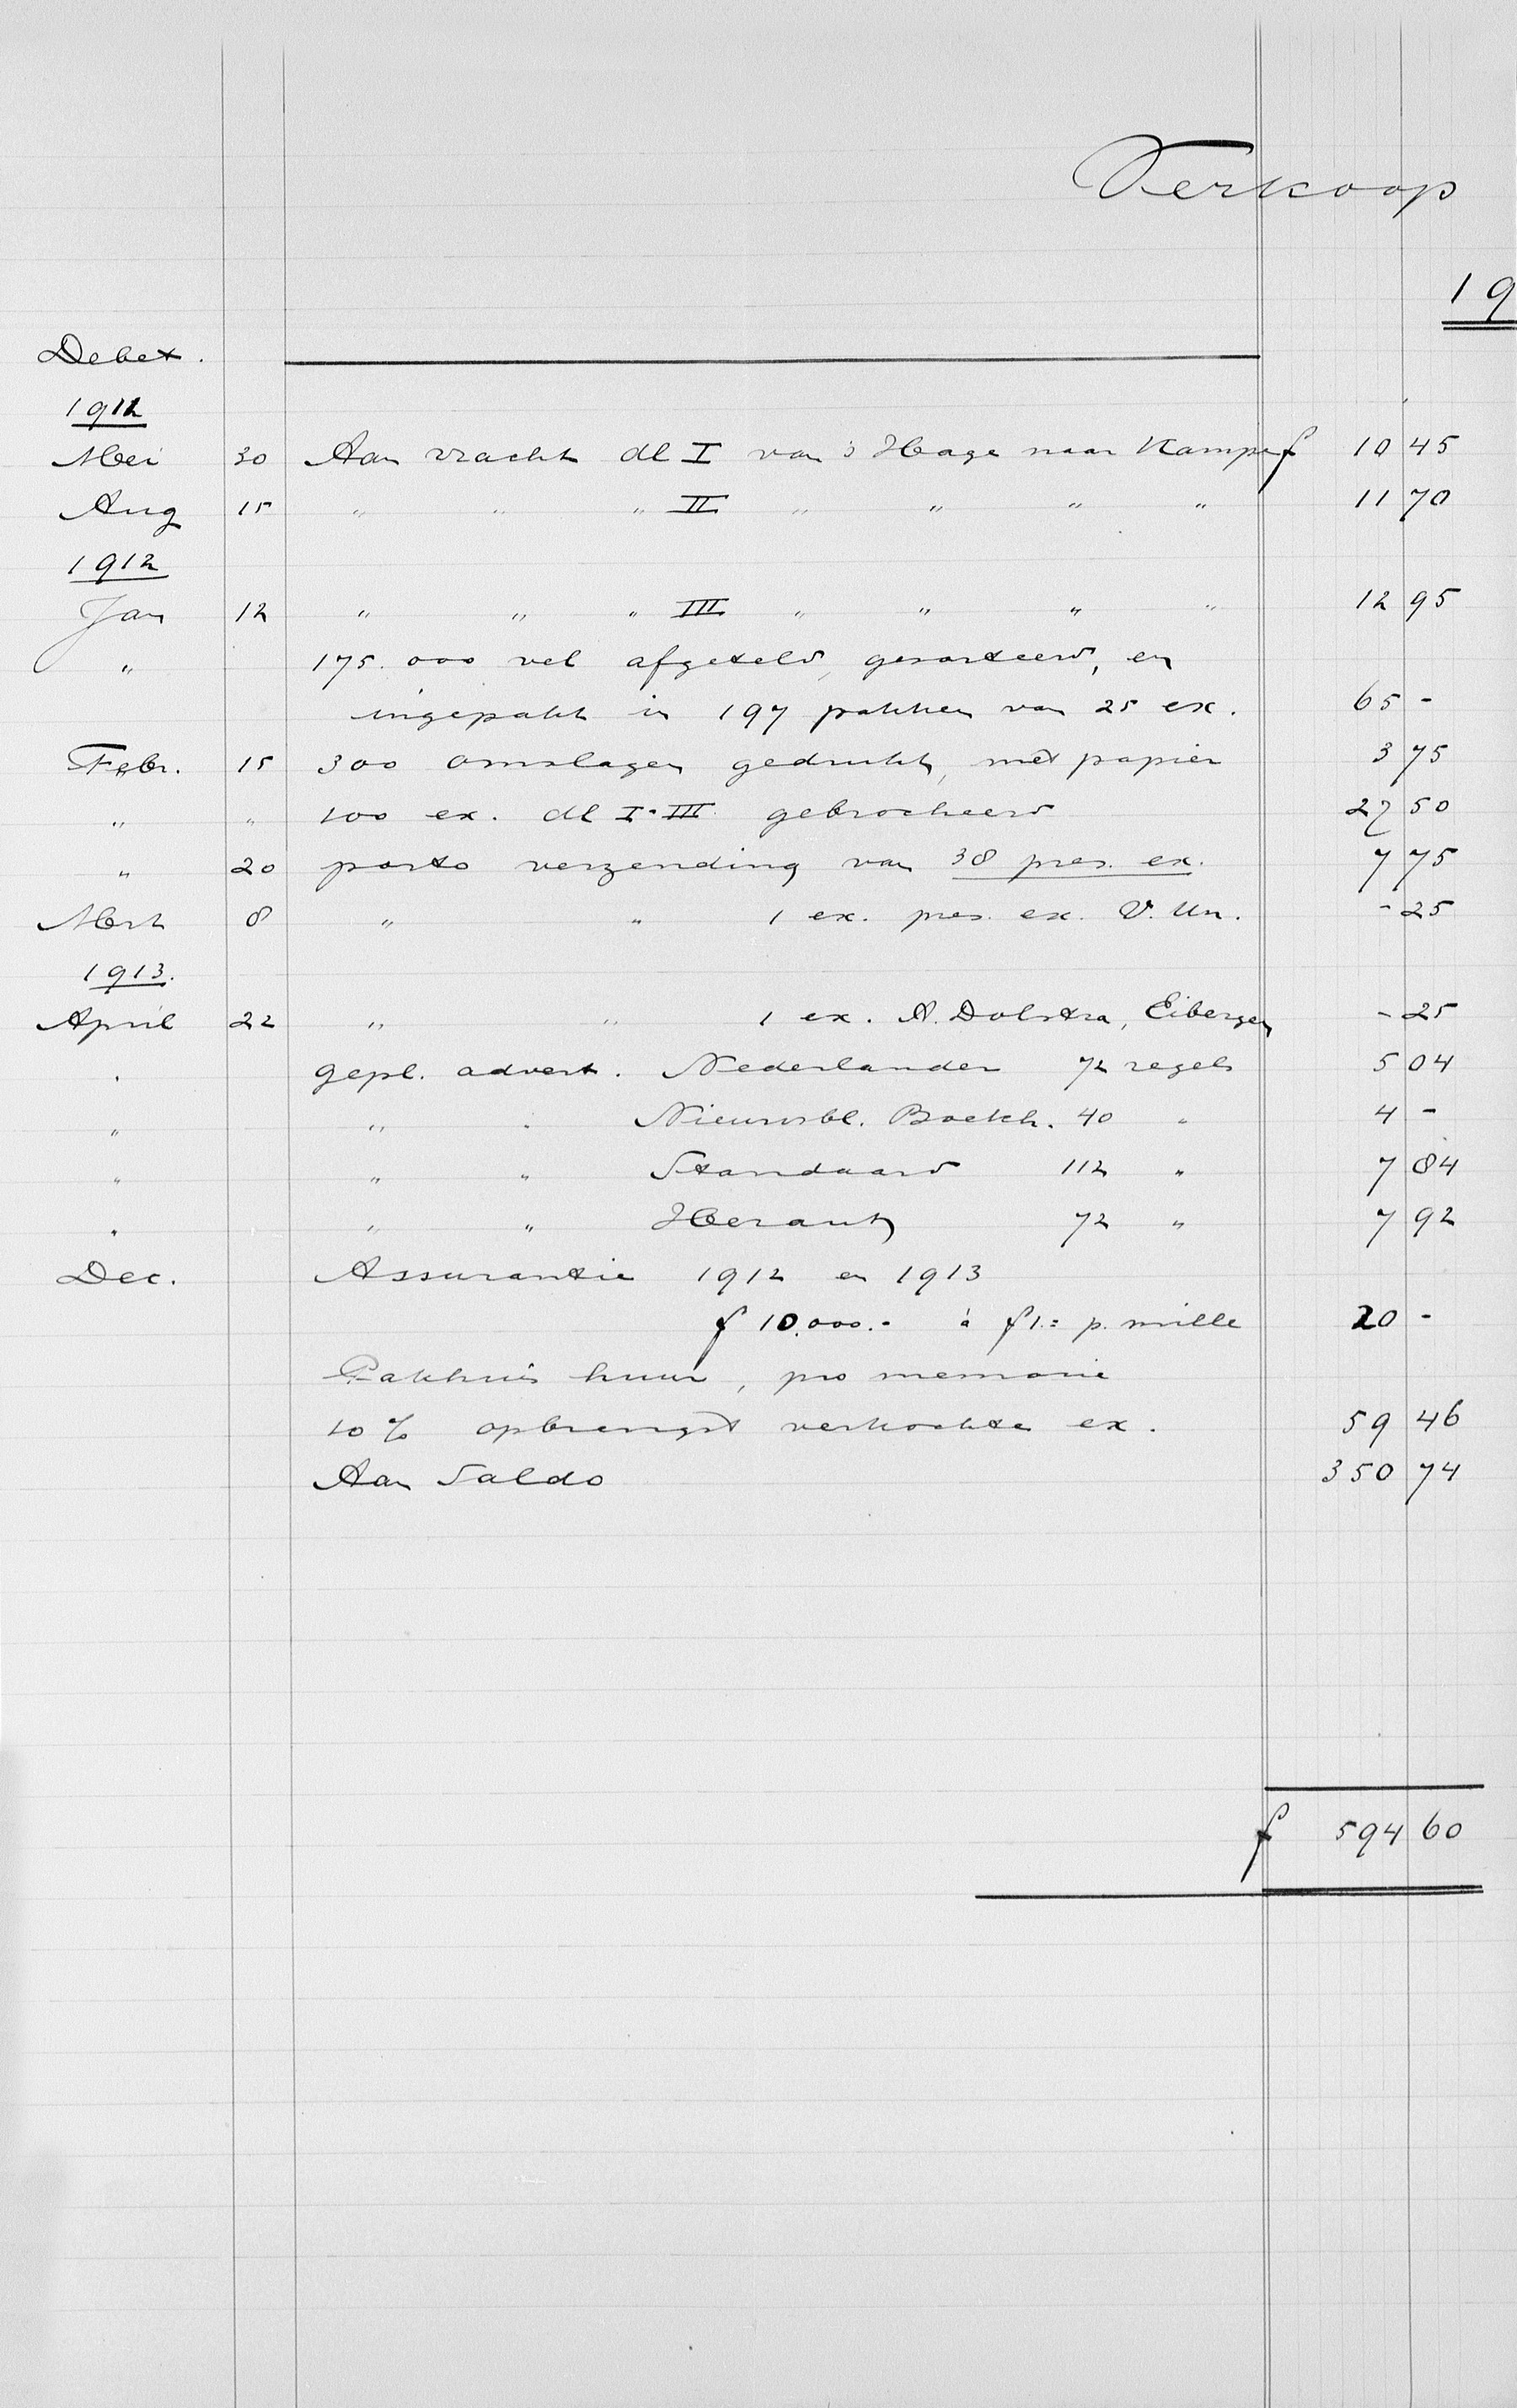 Verkoop
19
Debet.
1912
Mei 30 Aan vracht dl I van 's Hage naar Kampen f 10 45
Aug 15 " " " II " " " " 11 70
1912
Jan 12 " " " III " " " " 12 95
" 175.000 vel afgeteld, gesorteerd, en
ingepakt in 197 pakken van 25 ex. 65 -
Febr. 15 300 omslagen gedrukt, met papier 3 75
" " 100 ex. dl I-III gebrocheerd 27 50
" 20 porto verzending van 38 pres. ex. 7 75
Mrt 8 " " 1 ex. pres. ex. V. Un. - 25
1913.
April 22 " " 1 ex. A. Dolstra, Eibergen - 25
" gepl. advert. Nederlander 72 regels 5 04
" " " Nieuwsbl. Boekh. 40 " 4 -
" " " Standaard 112 " 7 84
" " " Heraut 72 " 7 92
Dec. Assurantie 1912 en 1913
f 10.000.- à f 1.= p. mille 20 -
Pakhuis huur, pro memorie
10 % opbrengst verkochte ex. 59 46
Aan Saldo 350 74
f 594 60